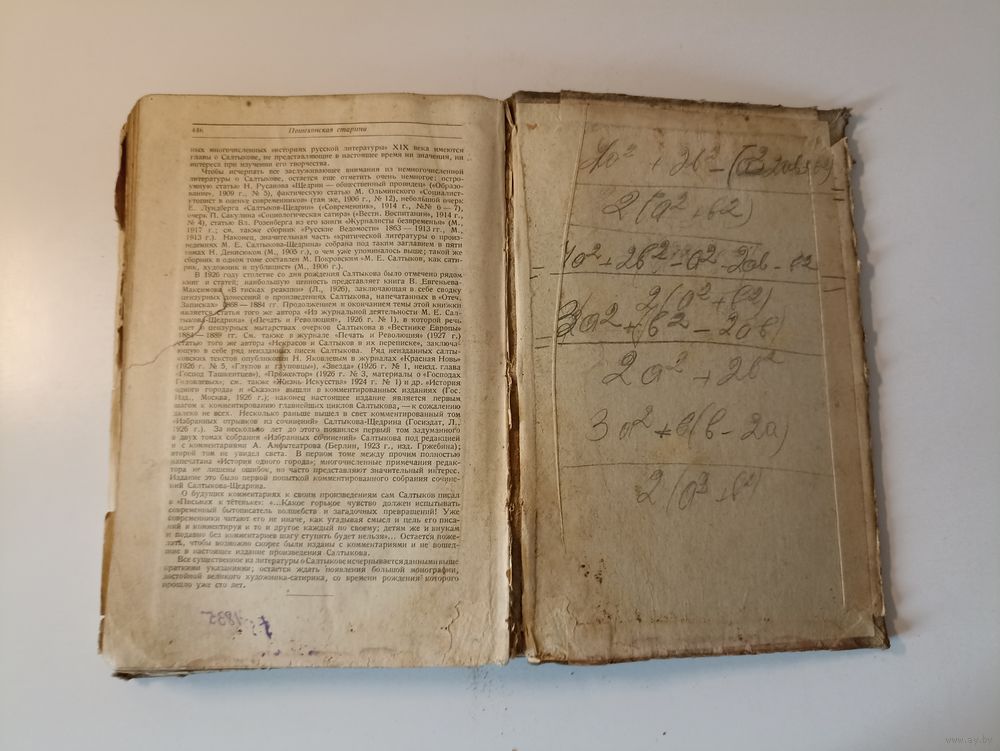 486 Пошехонская старина
ных многочисленных «историях русской литературы» XIX века имеются
главы о Салтыкове, не представляющие в настоящее время ни значения, ни
интереса при изучении его творчества.
Чтобы исчерпать все заслуживающее внимания из немногочисленной
литературы о Салтыкове, остается еще отметить очень немногое: остро-
умную статью Н. Русанова «Щедрин — общественный провидец» («Образо-
вание», 1909 г., № 5), фактическую статью М. Ольминского «Социалист-
утопист в оценке современников» (там же, 1906 г., № 12), небольшой очерк
Е. Лундберга «Салтыков-Щедрин» («Современник», 1914 г., №№ 6—7),
очерк П. Сакулина «Социологическая сатира» («Вестн. Воспитания», 1914 г.,
№ 4), статью Вл. Розенберга из его книги «Журналисты безвременья» (М.,
1917 г.; см. также сборник «Русские Ведомости» 1863—1913 гг., М.,
1913 г.). Наконец, значительная часть «критической литературы о произ-
ведениях М. Е. Салтыкова-Щедрина» собрана под таким заглавием в пяти
томах Н. Денисюком (М., 1905 г.), о чем уже упоминалось выше; такой же
сборник в одном томе составлен М. Покровским «М. Е. Салтыков, как сати-
рик, художник и публицист» (М., 1906 г.).
В 1926 году столетие со дня рождения Салтыкова было отмечено рядом
книг и статей; наибольшую ценность представляет книга В. Евгеньева-
Максимова «В тисках реакции» (Л., 1926), заключающая в себе сводку
цензурных донесений о произведениях Салтыкова, напечатанных в «Отеч.
Записках» 1868—1884 гг. Продолжением и окончанием темы этой книжки
является статья того же автора «Из журнальной деятельности М. Е. Сал-
тыкова-Щедрина» («Печать и Революция», 1926 г. № 1), в которой речь
идет о цензурных мытарствах очерков Салтыкова в «Вестнике Европы»
1884—1889 гг. См. также в журнале «Печать и Революция» (1927 г.)
статью того же автора «Некрасов и Салтыков в их переписке», заключа-
ющую в себе ряд неизданных писем Салтыкова. Ряд неизданных салты-
ковских текстов опубликован Н. Яковлевым в журналах «Красная Новь»
(1926 г. № 5, «Глупов и глуповцы»), «Звезда» (1926 г. № 1, неизд. глава
«Господ Ташкентцев»), «Прожектор» (1926 г. № 3, материалы о «Господах
Головлевых»; см. также «Жизнь Искусства» 1924 г. № 1) и др. «История
одного города» и «Сказки» вышли в комментированных изданиях (Гос.
Изд., Москва, 1926 г.); наконец настоящее издание является первым
шагом к комментированию главнейших циклов Салтыкова, — к сожалению
далеко не всех. Несколько раньше вышел в свет комментированный том
«Избранных отрывков из сочинений» Салтыкова-Щедрина (Госиздат, Л.,
1926 г.). За несколько лет до этого появился первый том задуманного
в двух томах собрания «Избранных сочинений» Салтыкова под редакцией
и с комментариями А. Амфитеатрова (Берлин, 1923 г., изд. Гржебина);
второй том не увидел света. В первом томе между прочим полностью
напечатана «История одного города»; многочисленные примечания редак-
тора не лишены ошибок, но часто представляют значительный интерес.
Издание это было первой попыткой комментированного собрания сочине-
ний Салтыкова-Щедрина.
О будущих комментариях к своим произведениям сам Салтыков писал
в «Письмах к тётеньке»: «...Какое горькое чувство должен испытывать
современный бытописатель волшебств и загадочных превращений! Уже
современники читают его не иначе, как угадывая смысл и цель его писа-
ний и комментируя и то и другое каждый по своему; детям же и внукам
и подавно без комментариев шагу ступить будет нельзя»... Остается поже-
лать, чтобы возможно скорее были изданы с комментариями и не вошед-
шие в настоящее издание произведения Салтыкова.
Все существенное из литературы о Салтыкове исчерпывается данными выше
краткими указаниями; остается ждать появления большой монографии,
достойной великого художника-сатирика, со времени рождения которого
прошло уже сто лет.
2(a² + b²)
4a² + 2b² - a² - 2ab - b²
2(a² + b²)
3a² + b² - 2ab
2a² + 2b²
3a² + b(b - 2a)
2(a² + b²)
www.ay.by